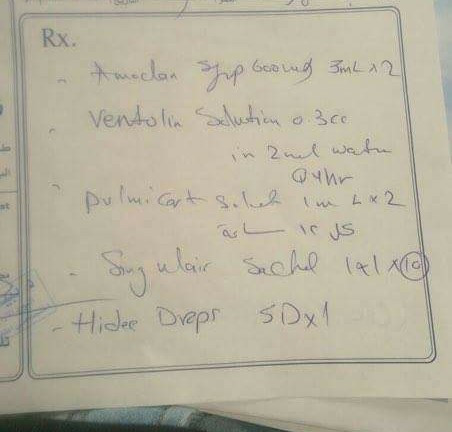 Rx.
- Amoclan Syrp 600mg 3mL x 2
- Ventolin Solution 0.3cc
in 2ml water
Q4hr
- Pulmicort 1mL x 2
كل ١٢
- Singulair Sachet 1x1 x 10
- Hidee Drops 5D x 1